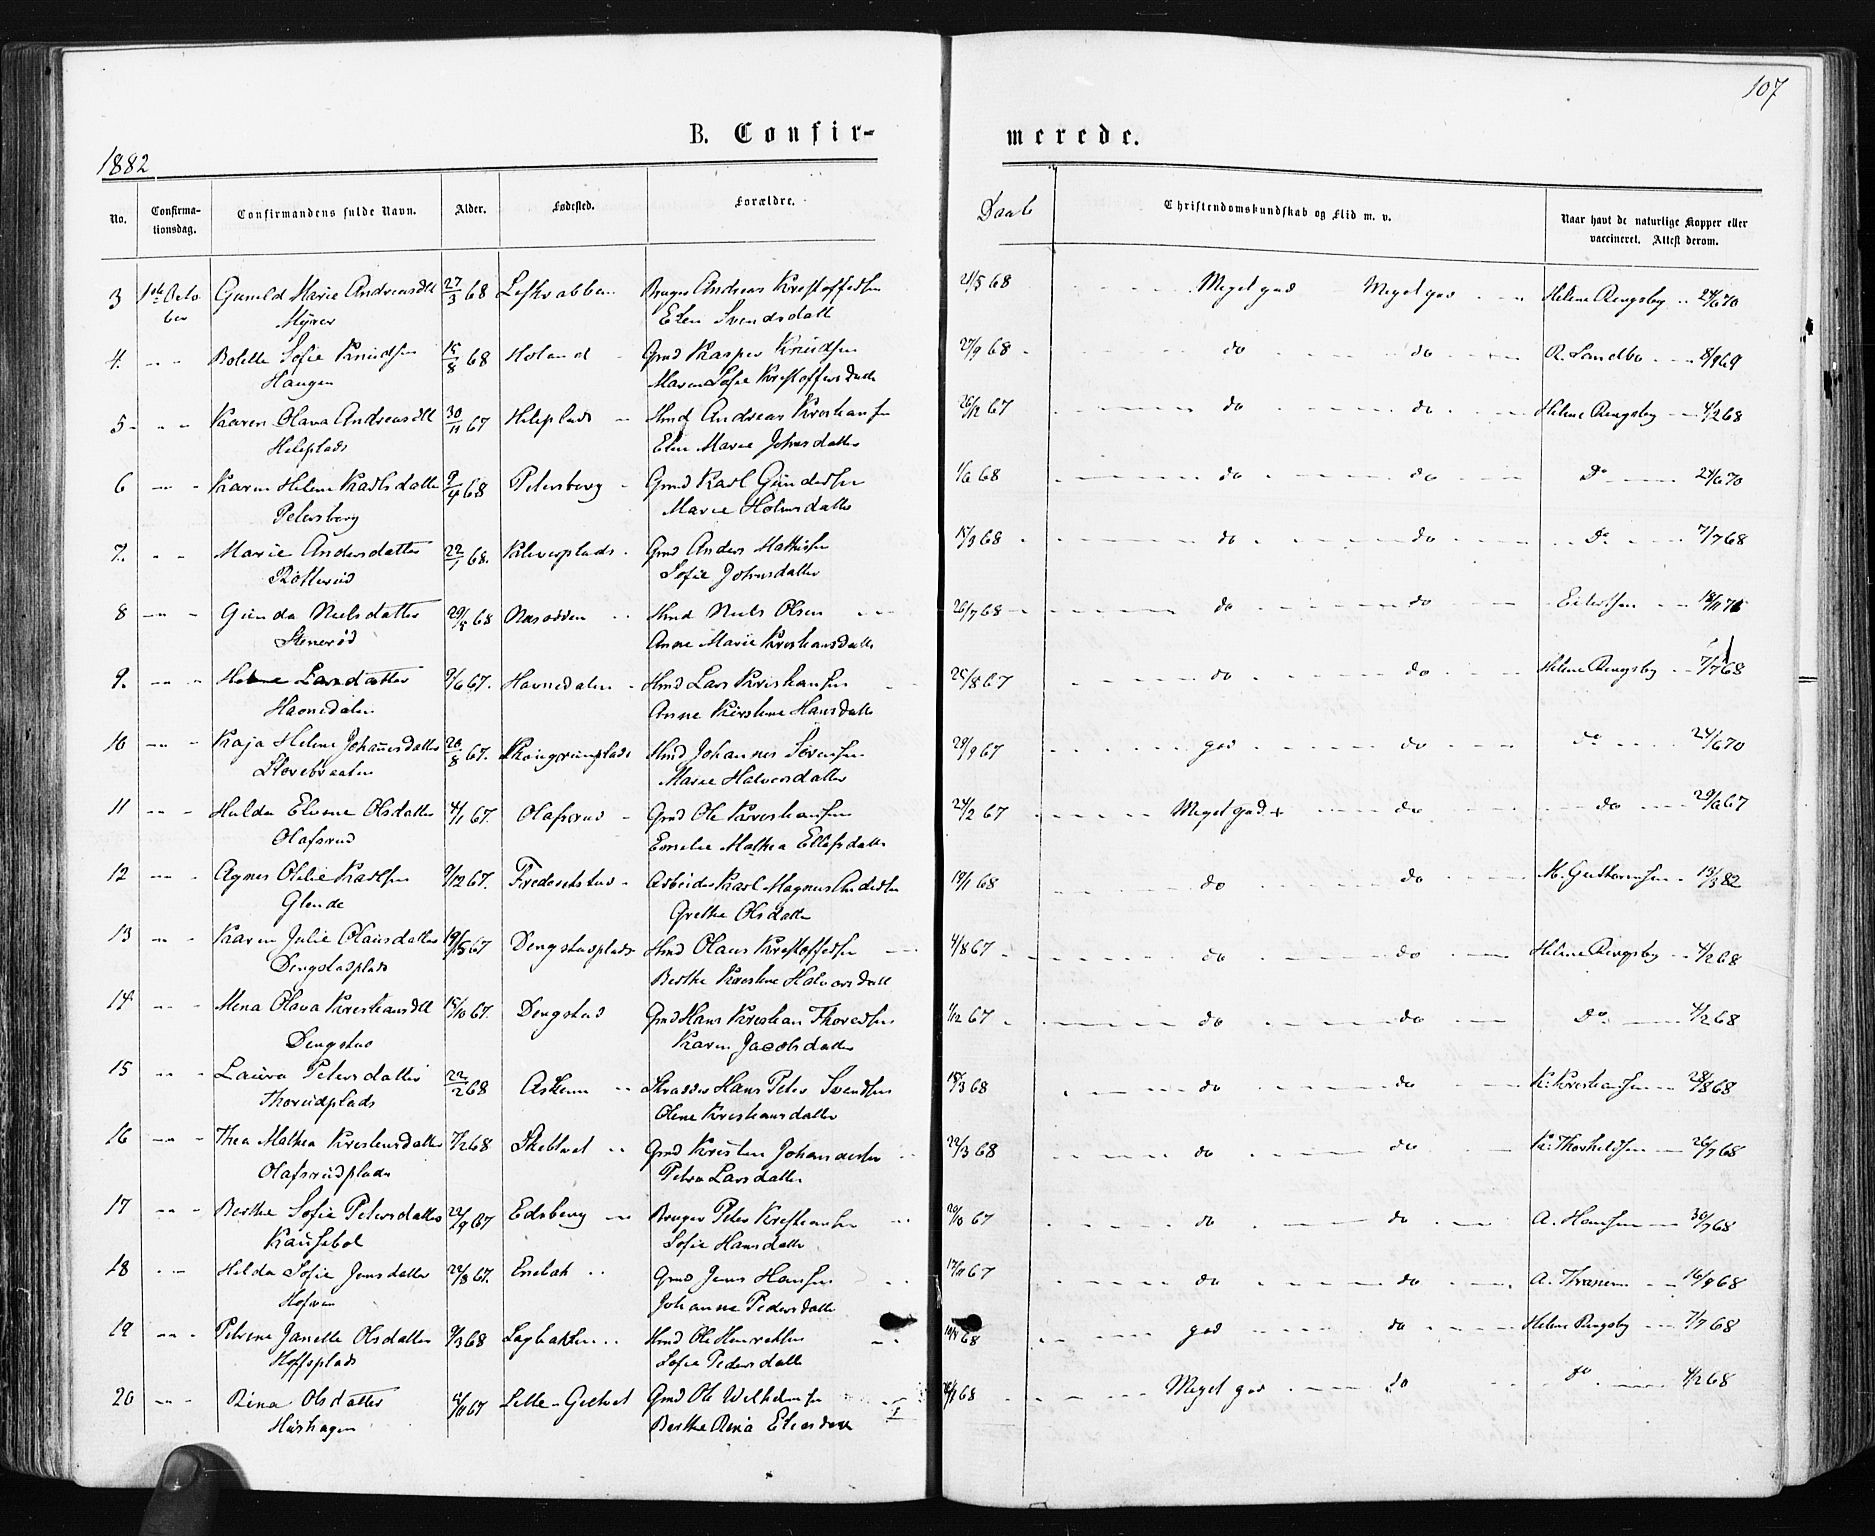 107
B. Confirmerede.
1882
No. Confirmationsdag. Confirmandens fulde Navn. Alder. Fødested. Forældre. Daab Christendomskundskab og Flid m. v. Naar havt de naturlige Kopper eller vaccineret. Attest derom.
3 1ste October Gunild Marie Andreasdtt 27/3 68 Bruger Andreas Kristoffersen 21/5 68 Meget god Meget god Helene Rengsby 24/6 70
Myrer Elen Svendsdatt
4. Bolette Sofie Knudsen 15/8 68 Høland Gmd Kasper Knudsen 27/9 68 do do R. Sandbo 8/9 69
Haugen Maren Sofie Kristoffersdatt
5 Karen Olava Andreasdtt 30/11 67 Heleplads Hmd Andreas Kristiansen 26/12 67 do do Helene Rengsby 4/2 68
Heleplads Elen Marie Johnsdatter
6 Karen Helene Karlsdatter 9/4 68 Petersborg Gmd Karl Gundersen 1/6 68 do do Do 24/6 70
Petersborg Marie Holmsdatter
7. Marie Andersdatter 22/1 68. Kleverplads Gmd Anders Mathisen 15/3 68 do do Do 7/7 68
Rotterud Sofie Johnsdatter
8 Gunda Nielsdatter 29/5 68 Næsodden Hmd Niels Olsen 26/7 68 do do Eilertsen
Stenerød Anne Marie Kristiansdatter
9. Helene Larsdatter 9/6 67. Havnedalen Hmd Lars Kristiansen 25/8 67 do do Helene Rengsby 7/7 68
Havnedalen Anne Kirstine Hansdatt
10 Kaja Helene Johannesdatter 20/8 67. Hmd Johannes Sørensen 29/9 67 god do do 24/6 70
Storebraaten Marie Halvorsdatter
11 Hulda Elvine Olsdatter 4/1 67. Olafsrud Gmd Ole Kristiansen 24/2 67 Meget god + do do 29/6 67
Olafsrud Emelie Mathea Ellefsdatt
12 Agnes Otilie Karlsen 9/12 67. Frederikstad Arbeider Karl Magnus Andersen 19/1 68 do do M. Guthormsen 13/3 82
Glende Grethe Olsdatter
13 Karen Julie Olausdatter 19/5 67 Dengstadplads Hmd Olaus Kristoffersen 4/8 67 do do Helene Rengsby 4/2 68
Dengstadplads Berthe Kirstine Halvorsdatt
14 Mina Olava Kristiansdtt 15/10 67. Dengstad Gmd Hans Kristian Thoresen 1/12 67 do do Do 4/2 68
Dengstad Karen Jacobsdatter
15 Laura Petersdatter 22/2 68 Askim Skrædder Hans Peter Svendsen 15/3 68 do do K. Kristiansen 28/8 68
Thorudplads Oline Kristiansdatter
16 Thea Mathea Kristensdatter 7/2 68 Skebtvet Gmd Kristen Johandersen 22/3 68 do do K. Thorkeldsen 26/7 68
Olafsrudplads Petra Larsdatter
17 Berthe Sofie Petersdatter 22/9 67 Edsberg Bruger Peter Kristiansen 20/10 67 do do A. Hansen 30/7 68
Kausebol Sofie Hansdatt
18 Hilda Sofie Jensdatter 22/8 67. Enebak Gmd Jens Hansen 17/11 67 do do A. Thranem 16/9 68
Hofven Johanne Pedersdatt
19 Petrine Janette Olsdatter 9/3 68 Hmd Ole Henriksen 68 god do Helene Rengsby 7/7 68
Hoffsplads Sofie Pedersdatt
20 Rina Olsdatter 4/11 67 Lille-Gretvet Gmd Ole Wilhelmsen 68 Meget god do Do 4/2 68
Hushagen Berthe Rina Eliasdatt